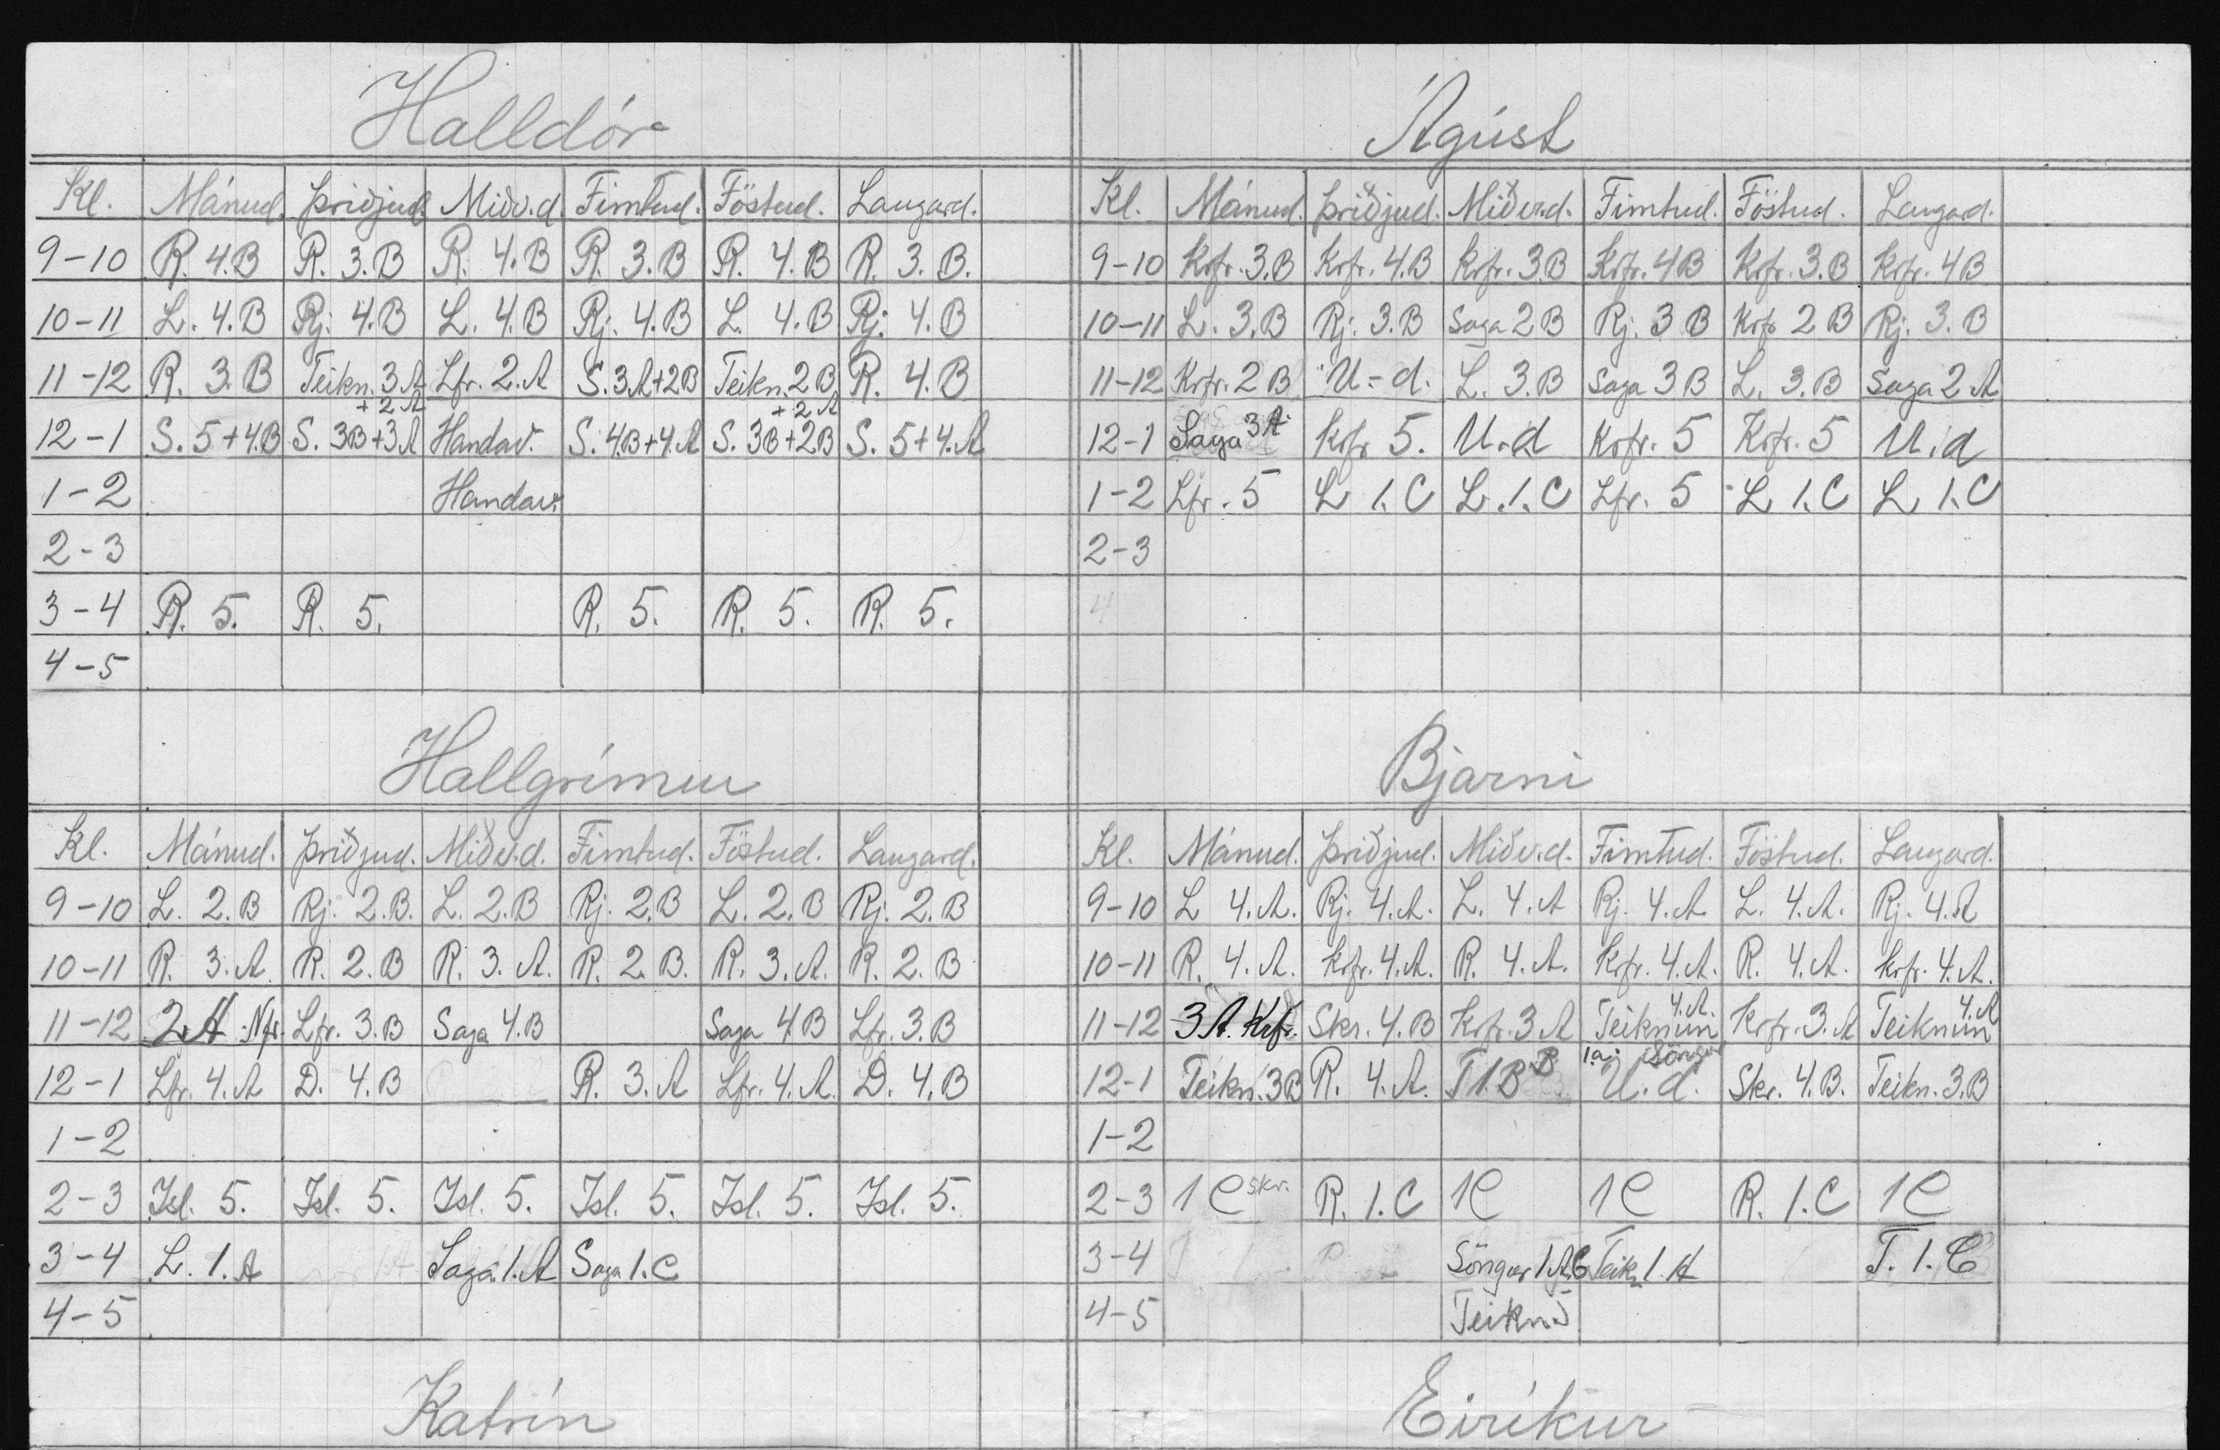 Halldór
Kl. Mánud. Þriðjud. Miðv.d. Fimtud. Föstud. Laugard.
9-10 R. 4.B R. 3.B R. 4.B R. 3.B R. 4.B R. 3.B.
10-11 L. 4.B Rj. 4.B L. 4.B Rj. 4.B L. 4.B Rj. 4.B
11-12 R. 3.B Teikn. 3A + 2A Lfr. 2.A S. 3.A+2B Teikn. 2B + 2A R. 4.B
12-1 S. 5+4.B S. 3B+3A Handav. S. 4.B+4.A S. 3B+2B S. 5+4.A
1-2 Handav.
2-3
3-4 R. 5. R. 5. R. 5. R. 5. R. 5.
4-5
Ágúst
Kl. Mánud. Þriðjud. Miðv.d. Fimtud. Föstud. Laugard.
9-10 Krfr. 3.B Krfr. 4.B Krfr. 3.B Krfr. 4B Krfr. 3.B Krfr. 4B
10-11 L. 3.B Rj. 3.B Saga 2B Rj. 3B Krfr. 2B Rj. 3.B
11-12 Krfr. 2B U-d. L. 3.B Saga 3B L. 3.B Saga 2A
12-1 Saga 3A Krfr 5. U.d Krfr. 5 Krfr. 5 U.d
1-2 Lfr. 5 L 1.C L.1.C Lfr. 5 L 1.C L 1.C
2-3
4
Hallgrímur
Kl. Mánud. Þriðjud. Miðv.d. Fimtud. Föstud. Laugard.
9-10 L. 2.B Rj. 2.B. L. 2.B Rj. 2.B L. 2.B Rj. 2.B
10-11 R. 3.A R. 2.B R. 3.A. R. 2.B. R. 3.A. R. 2.B
11-12 2.A Nfr. Lfr. 3.B Saga 4.B Saga 4B Lfr. 3.B
12-1 Lfr. 4.A D. 4.B R. 3.A Lfr. 4.A. D. 4.B
1-2
2-3 Ísl. 5. Ísl. 5. Ísl. 5. Ísl. 5. Ísl. 5. Ísl. 5.
3-4 L. 1.A Saga 1.A Saga 1.C
4-5
Bjarni
Kl. Mánud. Þriðjud. Miðv.d. Fimtud. Föstud. Laugard.
9-10 L 4.A. Rj. 4.A. L. 4.A Rj. 4.A. L. 4.A. Rj. 4.A
10-11 R. 4.A. Krfr. 4.A. R. 4.A. Krfr. 4.A. R. 4.A. Krfr. 4.A.
11-12 3A. Krfr. Skr. 4.B Krfr. 3A Teiknun 4.A. Krfr. 3.A Teiknun 4.A
12-1 Teikn. 3B R. 4.A. T 1.B 1.a. Söngur U.d. Skr. 4.B. Teikn. 3.B
1-2
2-3 1C skr. R. 1.C 1C 1C R. 1.C 1C
3-4 Söngur 1 A.C Teik. 1.A T. 1.C
4-5 Teikn.
Katrín
Eiríkur